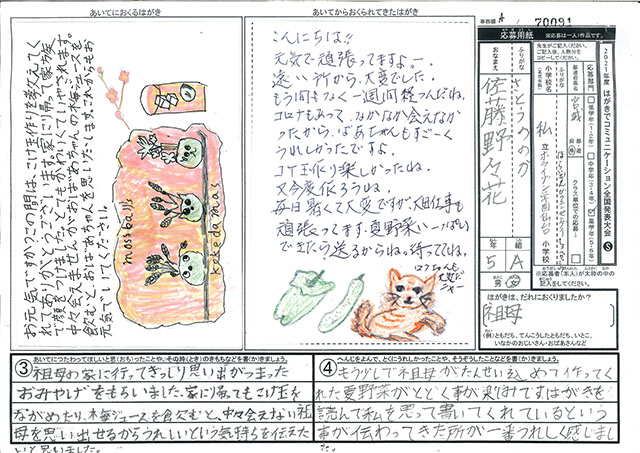 あいてにおくるはがき
お元気ですか?この間は、こけ玉作りを教えてく
れてありがとうございます。家に帰って家ち族
で顔をつけました。とてもかわいくていやされます。
中々会えませんが、おばあちゃんの梅ジュースを
飲むとおばあちゃんを思いだします。これからもお
元気でいてください。
moss ball's
kokedamas
あいてからおくられてきたはがき
こんにちは!!
元気で頑張ってますよー。
遠い所から、大変でした。
もう間もなく一週間経つんだね。
コロナもあって、なかなか会えなか
ったから、ばあちゃんもすごーく
うれしかったですよ。
コケ玉作り楽しかったね。
又今度作ろうね。
毎日暑くて大変ですが、畑仕事も
頑張ってます。夏野菜いっぱい
できたら送るからね。待っててね。
事務欄 A 70091
応募用紙
※応募は一人1作品です。
2021年度 はがきでコミュニケーション全国発表大会 5
先生がご記入ください。
ご記入後、人数分を
コピーしてください。
応募部門
低学年(1・2年)
中学年(3・4年)
高学年(5・6年)
都道府県名
宮城
ふりがな
小学校名
私立 ホライゾン学園仙台 小学校
クラス単位での応募
ふりがな さとうののか
おなまえ 佐藤野々花
5年
A組
男 女
はがきは、だれにおくりましたか?
祖母
(例)ともだち、てんこうしたともだち、いとこ、
いなかのおじいさん・おばあさんなど
③ あいてにつたわってほしいと思(おも)ったことや、その時(とき)のきもちなどを書(か)きましょう。
祖母の家に行ってぎっしり思い出がつまった
おみやげをもらいました。家に帰ってもこけ玉を
ながめたり、梅ジュースを飲むと、中々会えない祖
母を思い出せるからうれしいという気持ちを伝えた
いと思いました。
④ へんじをよんで、とくにうれしかったことや、そうぞうしたことなどを書(か)きましょう。
もう少しで祖母がたんせい込めて作ってく
れた夏野菜がとどく事が楽しみです。はがきを
読んで私を思って書いてくれているという
事が伝わってきた所が一番うれしく感じまし